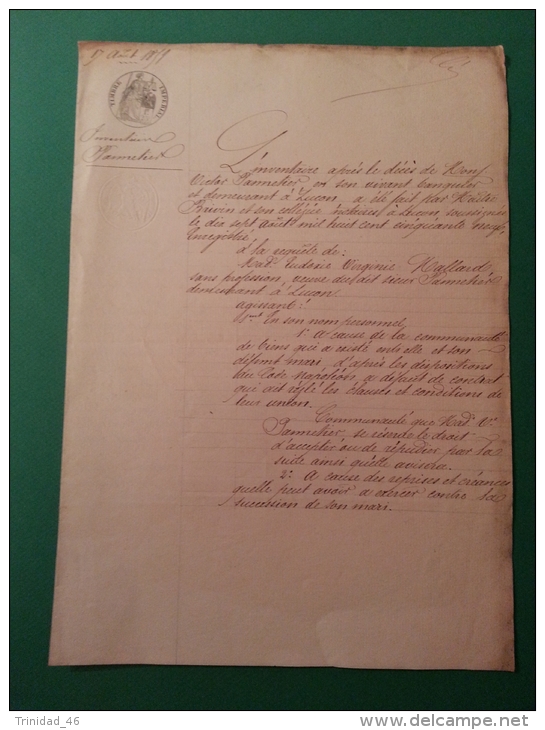 17 Août 1859
TIMBRE IMPERIAL
Inventaire
Pannetier
L'inventaire après le décès de Mons.
Victor Pannetier en son vivant banquier
et demeurant à Luçon a été fait par Maître
et son collègue notaires à Luçon, soussignés
le dix sept Août mil huit cent cinquante neuf,
Enregistré,
à la requête de:
Mad. Ludovie Virginie Mallard,
sans profession, veuve du dit sieur Pannetier
demeurant à Luçon
agissant:
1ent En son nom personnel,
1° A cause de la communauté
de biens qui a existé entre elle et son
défunt mari, d'après les dispositions
du Code Napoléon, a défaut de contrat
qui ait réglé les clauses et conditions de
leur union.
Communauté que Mad. Ve
Pannetier, se réserve le droit
d'accepter ou de répudier par la
suite ainsi qu'elle avisera.
2° A cause des reprises et créances
quelle peut avoir a exercer contre la
succession de son mari.
Trinidad_46
www.delcampe.net